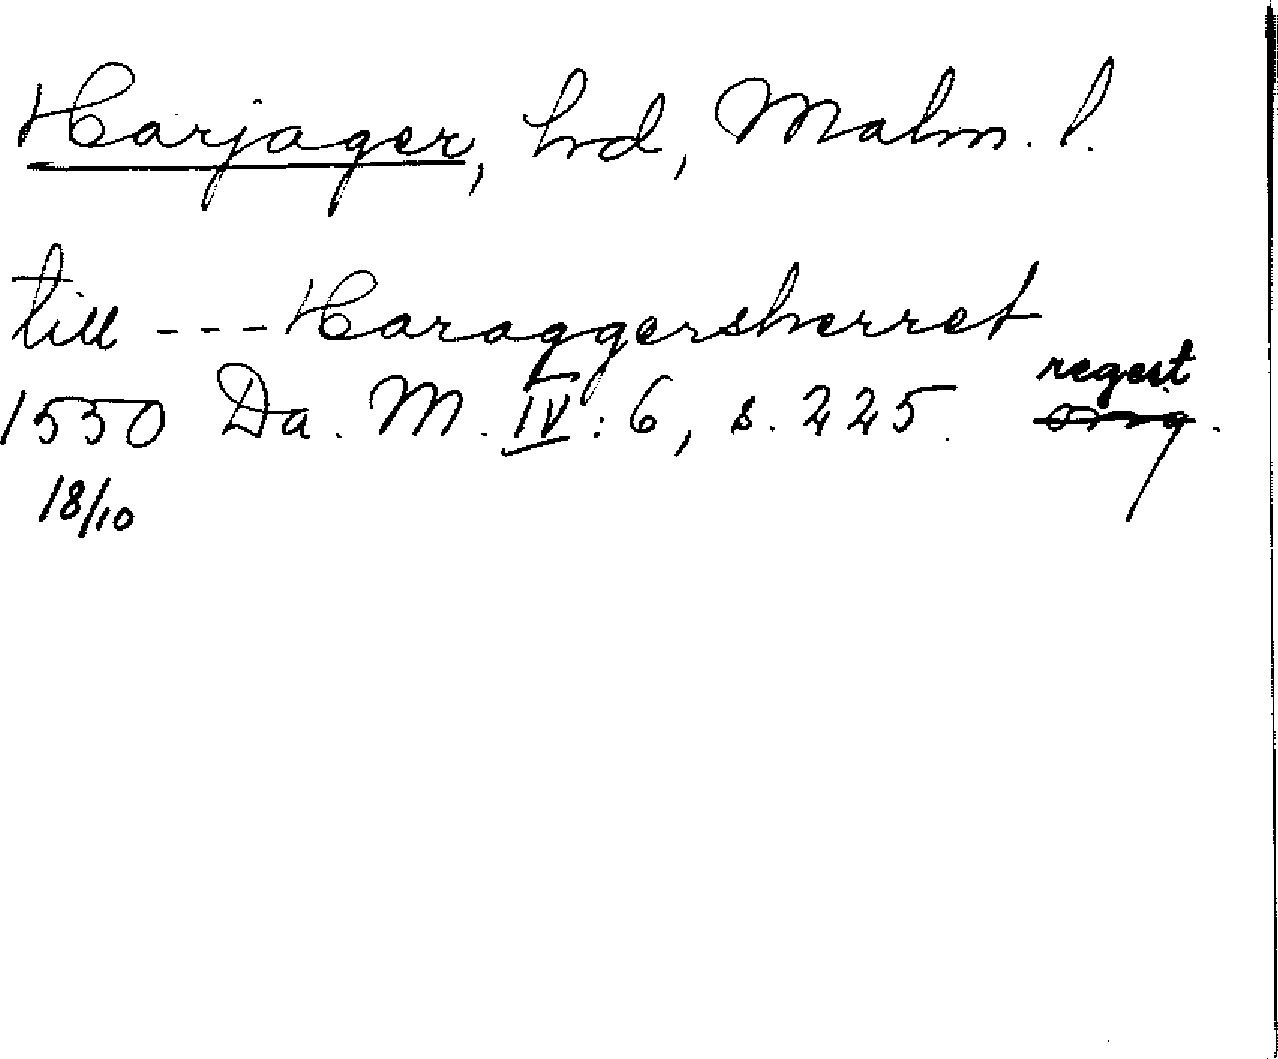 Harjager, hd, Malm. l.
till --- Haraggersherret
regest
1550 Da. M. IV: 6, s. 225. omg.
18/10